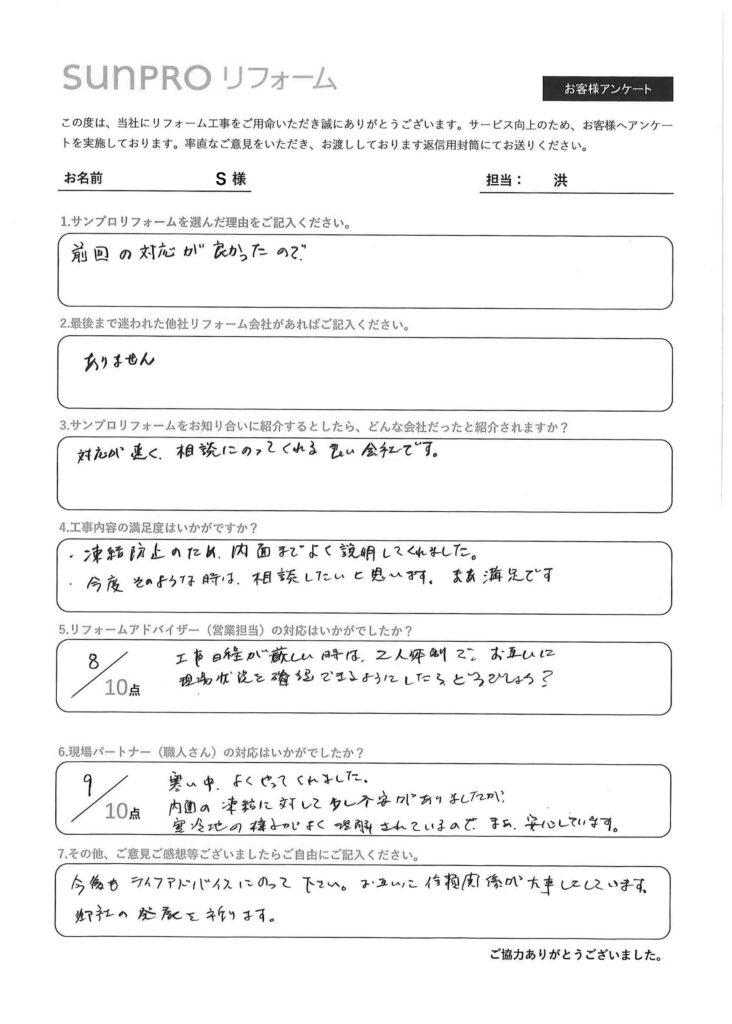 SUNPRO リフォーム
お客様アンケート
この度は、当社にリフォーム工事をご用命いただき誠にありがとうございます。サービス向上のため、お客様へアンケー
トを実施しております。率直なご意見をいただき、お渡ししております返信用封筒にてお送りください。
お名前 S 様 担当: 洪
1.サンプロリフォームを選んだ理由をご記入ください。
前回の対応が良かったので
2.最後まで迷われた他社リフォーム会社があればご記入ください。
ありません
3.サンプロリフォームをお知り合いに紹介するとしたら、どんな会社だったと紹介されますか?
対応が速く、相談にのってくれる良い会社です。
4.工事内容の満足度はいかがですか?
・凍結防止のため、内面までよく説明してくれました。
・今度そのような時は、相談したいと思います。まあ満足です
5.リフォームアドバイザー(営業担当)の対応はいかがでしたか?
8/10点
工事日程が厳しい時は、2人体制で、お互いに
現場状況を確認できるようにしたらどうでしょう?
6.現場パートナー(職人さん)の対応はいかがでしたか?
9/10点
寒い中、よくやってくれました。
内面の凍結に対して少し不安がありましたが、
寒冷地の様子がよく理解されているので、まあ、安心しています。
7.その他、ご意見ご感想等ございましたらご自由にご記入ください。
今後もライフアドバイスにのって下さい。お互いに信頼関係が大事としています。
御社の発展を祈ります。
ご協力ありがとうございました。